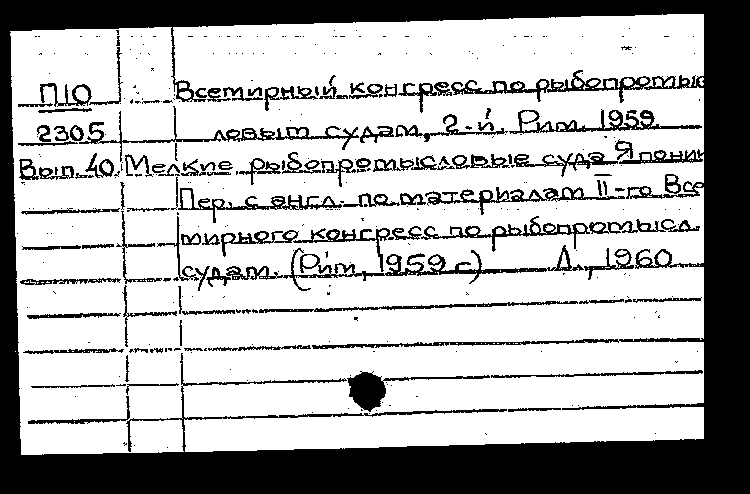 П10 Всемирный конгресс по рыбопромыс
2305 ловым судам, 2-й. Рим. 1959
Вып. 40 Мелкие рыбопромысловые суда Японии
Пер. с англ. по материалам II-го Все
мирного конгресс по рыбопромысл.
судам. (Рим, 1959 г.) Л., 1960